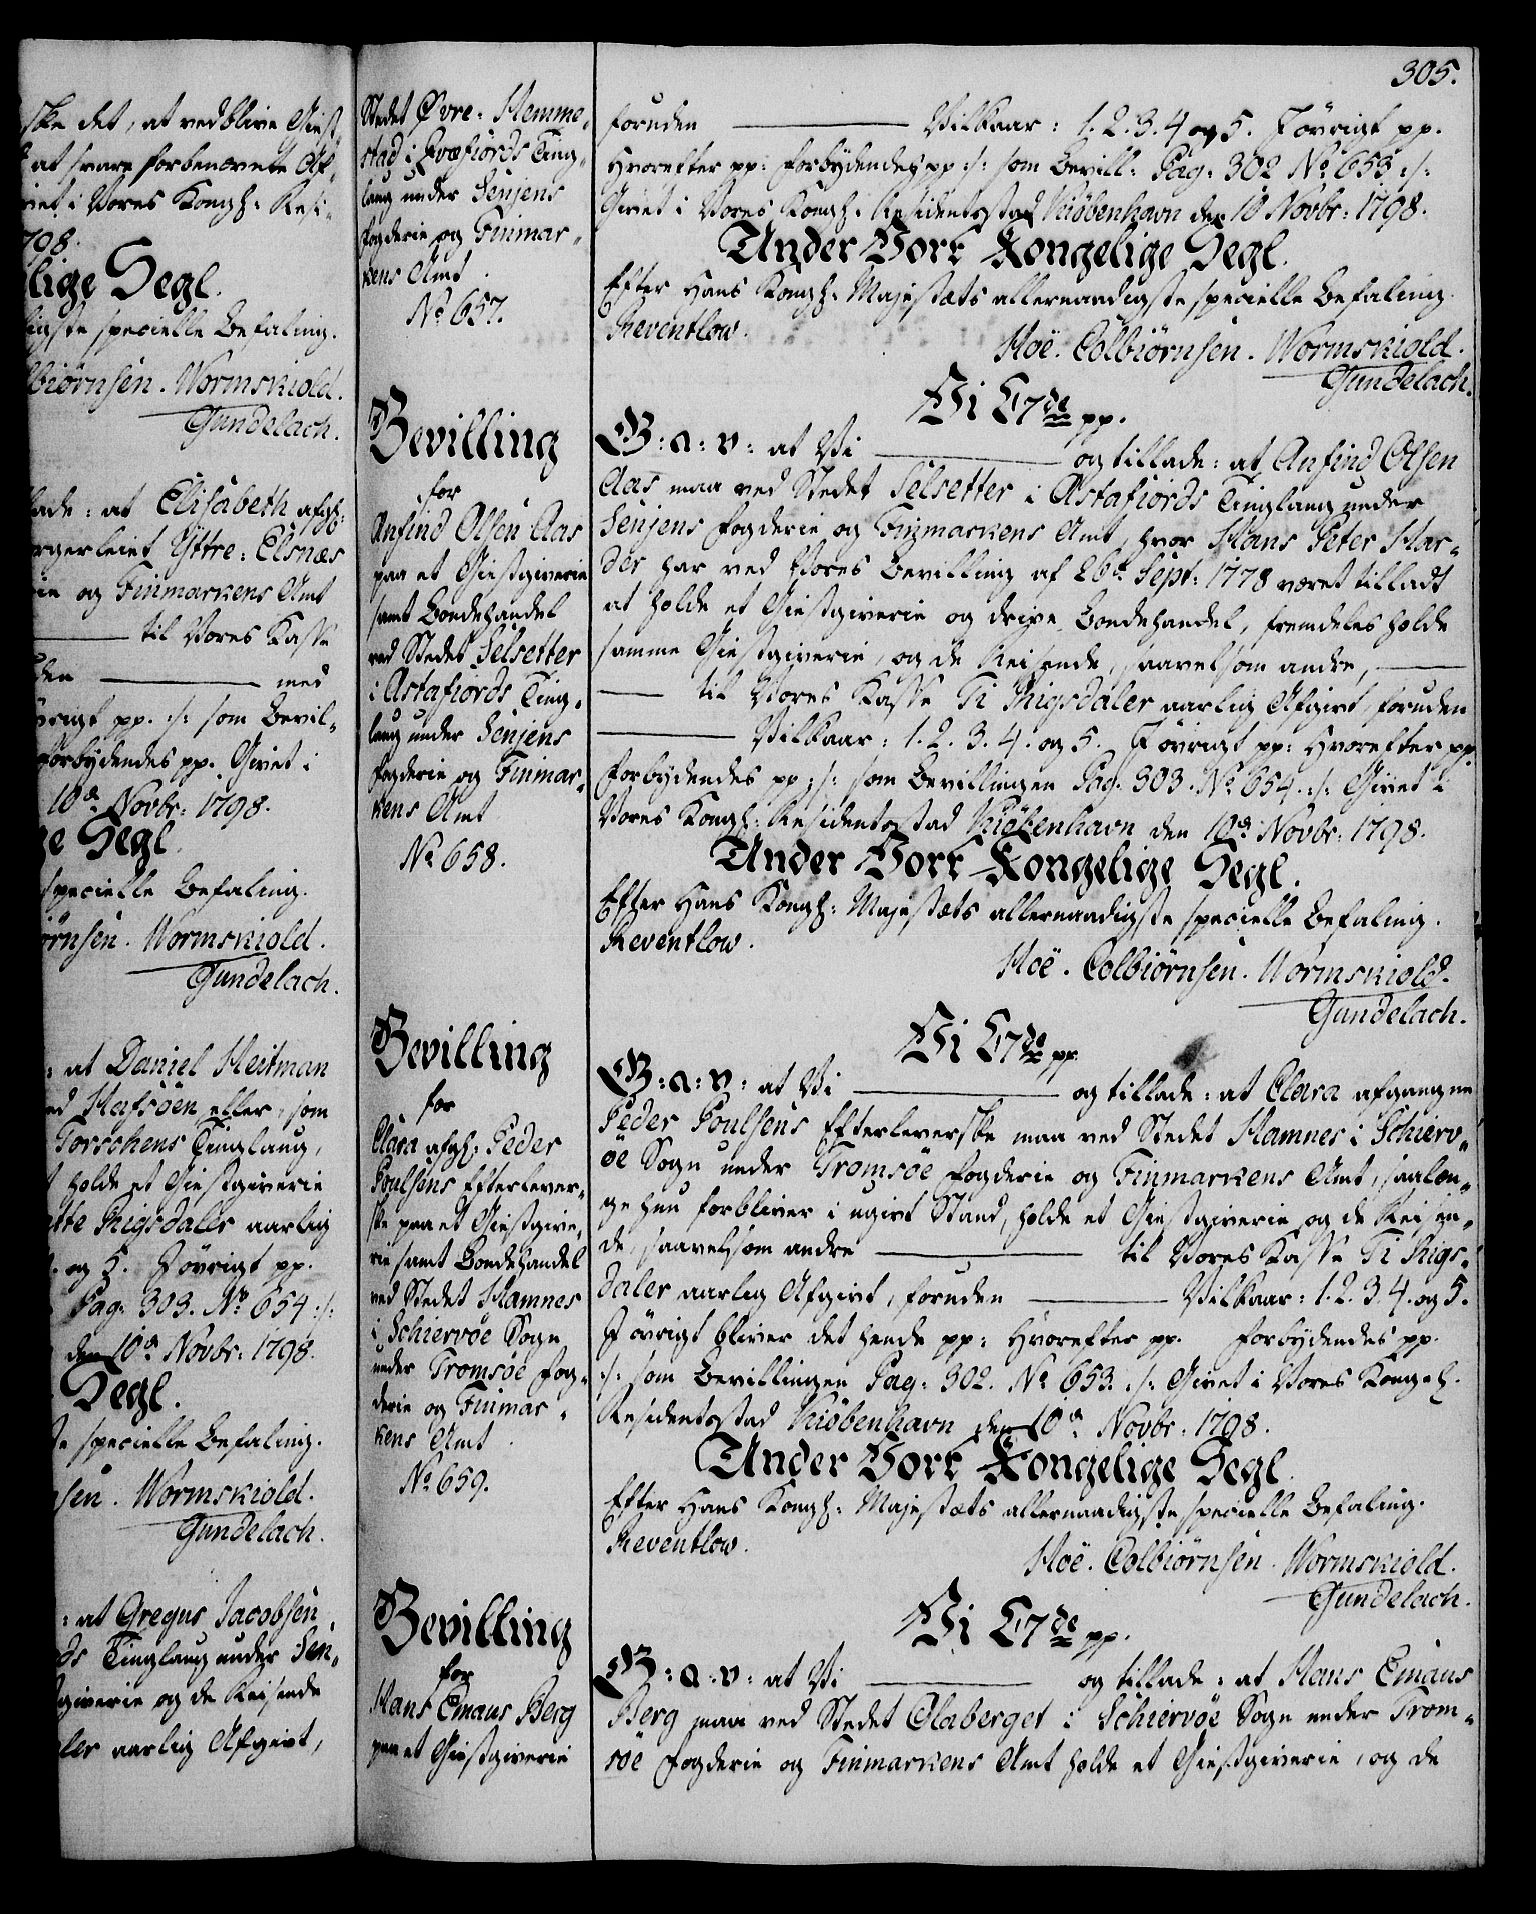 305.
ske det, at vedblive Giest-
at svare forbenævnte Af-
givet i Vores Kongh: Resi-
1798.
lige Segl.
digste specielle Befaling.
lbiørnsen. Wormskiold.
Gundelach.
lade: at Elisabeth afgh:
orgerleiet Yttre-Elsnæs
rie og Finmarkens Amt
——— til Vores Kasse
den ——— med
øvrigt pp. :/: som Bevil-
forbydendes pp. Givet i
10de Novbr: 1798.
ge Segl.
specielle Befaling.
ørnsen. Wormskiold.
Gundelach.
: at Daniel Heitman
ed Hafsöen, eller, som
Torschens Tinglaug,
holde et Giestgiverie
otte Rigsdaler aarlig
og 5. I øvrigt pp.
Pag: 303. No 654 :/:
den 10de Novbr: 1798.
Segl.
te specielle Befaling.
nsen. Wormskiold.
Gundelach.
: at Gregus Jacobsen
ds Tinglaug under Sen-
giverie og de Reisende
ler aarlig Afgivt,
Stedet Øvre-Hemme-
stad i Qvæfiords Ting-
laug under Senjens
Fogderie og Finmar-
kens Amt.
No 657.
Bevilling
for
Anfind Olsen Aas
paa et Giestgiverie
samt Bondehandel
ved Stedet Selsetter
i Astafiords Ting-
laug under Senjens
Fogderie og Finmar-
kens Amt
No 658.
Bevilling
for
Clara afgh: Peder
Poulsens Efterlever-
ske paa et Giestgive-
rie samt Bondehandel
ved Stedet Hamnes
i Schiervöe Sogn
under Tromsöe Fog-
derie og Finmar-
kens Amt.
No 659.
Bevilling
for
Hans Emaus Berg
paa et Giestgiverie
foruden ——— Vilkaar: 1. 2. 3. 4 og 5. I øvrigt pp.
Hvorefter pp: Forbydendes pp :/: som Bevill: Pag: 302 No 653 :/:
Givet i Vores Kongh: Residentsstad Kiöbenhavn den 10 Novbr: 1798.
Under Vort Kongelige Segl.
Efter Hans Kongh: Majestæts allernaadigste specielle Befaling.
Reventlow.
Hoë. Colbiörnsen. Wormskiold.
Gundelach.
Vi C7de pp.
G: a: v: at Vi ——— og tillade: at Anfind Olsen
Aas maa ved Stedet Selsetter i Astafiords Tinglaug under
Senjens Fogderie og Finmarkens Amt, hvor Hans Peter Har-
der har ved Vores Bevilling af 26de Sept: 1778 været tilladt
at holde et Giestgiverie og drive Bondehandel, fremdeles holde
samme Giestgiverie, og de Reisende, saavelsom andre, ———
——— til Vores Kasse Ti Rigsdaler aarlig Afgivt, foruden
——— Vilkaar: 1. 2. 3. 4. og 5. I øvrigt pp: Hvorefter pp.
Forbydendes pp :/: som Bevillingen Pag. 303. No 654. :/: Givet i
Vores Kongh: Residentsstad Kiöbenhavn den 10de Novbr: 1798.
Under Vort Kongelige Segl.
Efter Hans Kongh: Majestæts allernaadigste specielle Befaling.
Reventlow.
Hoë. Colbiörnsen. Wormskiold.
Gundelach.
Vi C7de pp.
G: a: v: at Vi ——— og tillade: at Clara afgangne
Peder Poulsens Efterleverske maa ved Stedet Hamnes i Schierv-
öe Sogn under Tromsöe Fogderie og Finmarkens Amt, saalæn-
ge hun forbliver i ugivt Stand, holde et Giestgiverie og de Reisen-
de, saavelsom andre ——— til Vores Kasse Ti Rigs-
daler aarlig Afgivt, foruden ——— Vilkaar: 1. 2. 3. 4. og 5.
I øvrigt bliver det hende pp: Hvorefter pp. Forbydendes pp.
:/: som Bevillingen Pag: 302. No 653. :/: Givet i Vores Kongel.
Residentsstad Kiöbenhavn den 10de Novbr: 1798.
Under Vort Kongelige Segl.
Efter Hans Kongh: Majestæts allernaadigste specielle Befaling.
Reventlow.
Hoë. Colbiörnsen. Wormskiold.
Gundelach.
Vi C7de pp.
G: a: v: at Vi ——— og tillade: at Hans Emaus
Berg maa ved Stedet Olaberget i Schiervöe Sogn under Trom-
söe Fogderie og Finmarkens Amt holde et Giestgiverie, og de